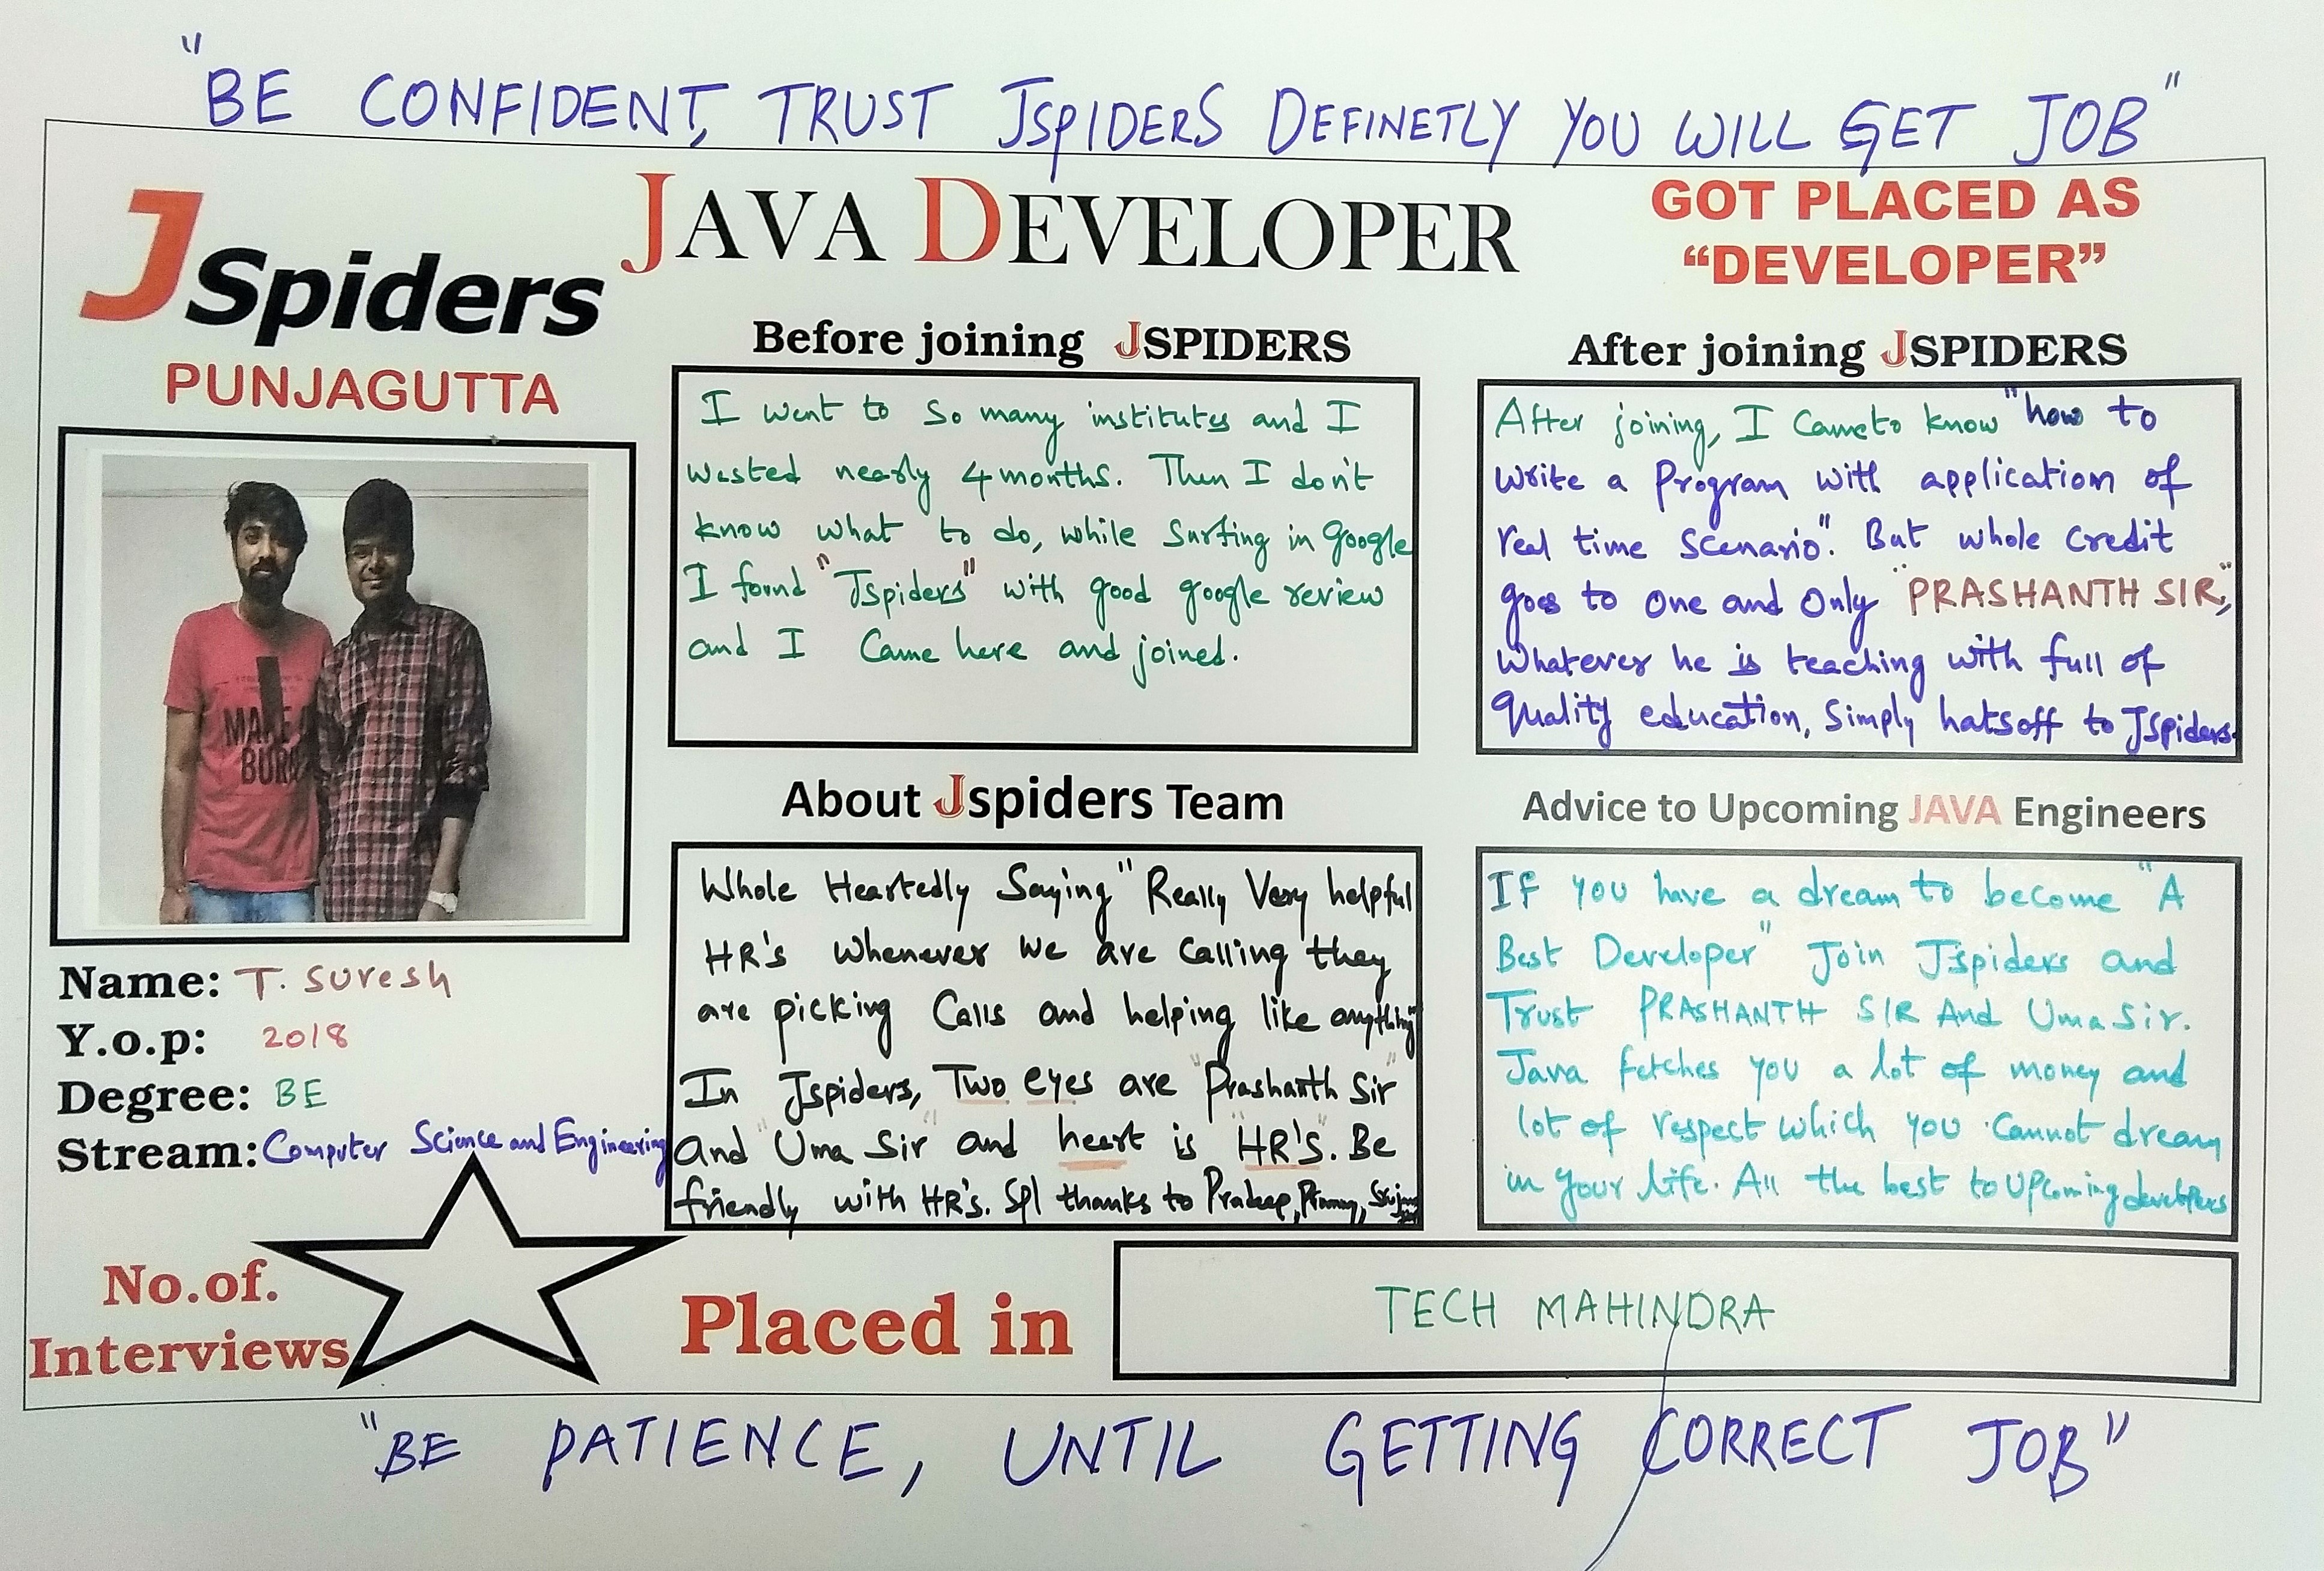 "BE CONFIDENT, TRUST JSPIDERS DEFINETLY YOU WILL GET JOB"
JSpiders
PUNJAGUTTA
JAVA DEVELOPER
GOT PLACED AS
“DEVELOPER”
Before joining JSPIDERS
I went to so many institutes and I
wasted nearly 4 months. Then I don't
know what to do, while surfing in google
I found "Jspiders" with good google review
and I came here and joined.
After joining JSPIDERS
After joining, I Came to know "how to
write a program with application of
real time scenario". But whole credit
goes to one and only "PRASHANTH SIR",
whatever he is teaching with full of
quality education, simply hatsoff to Jspiders.
MAKE
BURN
Name: T. Suresh
Y.o.p: 2018
Degree: BE
Stream: Computer Science and Engineering
About Jspiders Team
Whole Heartedly Saying "Really Very helpful
HR's whenever we are calling they
are picking Calls and helping like anything"
In Jspiders, Two eyes are "Prashanth Sir"
and "Uma Sir" and heart is "HR's". Be
friendly with HR's. Spl thanks to Pradeep,
Advice to Upcoming JAVA Engineers
If you have a dream to become "A
Best Developer" Join Jspiders and
Trust PRASHANTH SIR And Uma Sir.
Java fetches you a lot of money and
lot of respect which you cannot dream
in your life. All the best to upcoming developers
No.of.
Interviews
Placed in
TECH MAHINDRA
"BE PATIENCE, UNTIL GETTING CORRECT JOB"